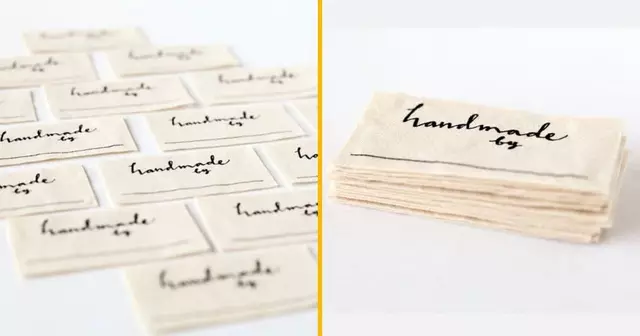 handmade
by
handmade
by
handmade
by
handmade
by
handmade
by
handmade
by
handmade
by
handmade
by
handmade
by
handmade
by
handmade
by
handmade
by
handmade
by